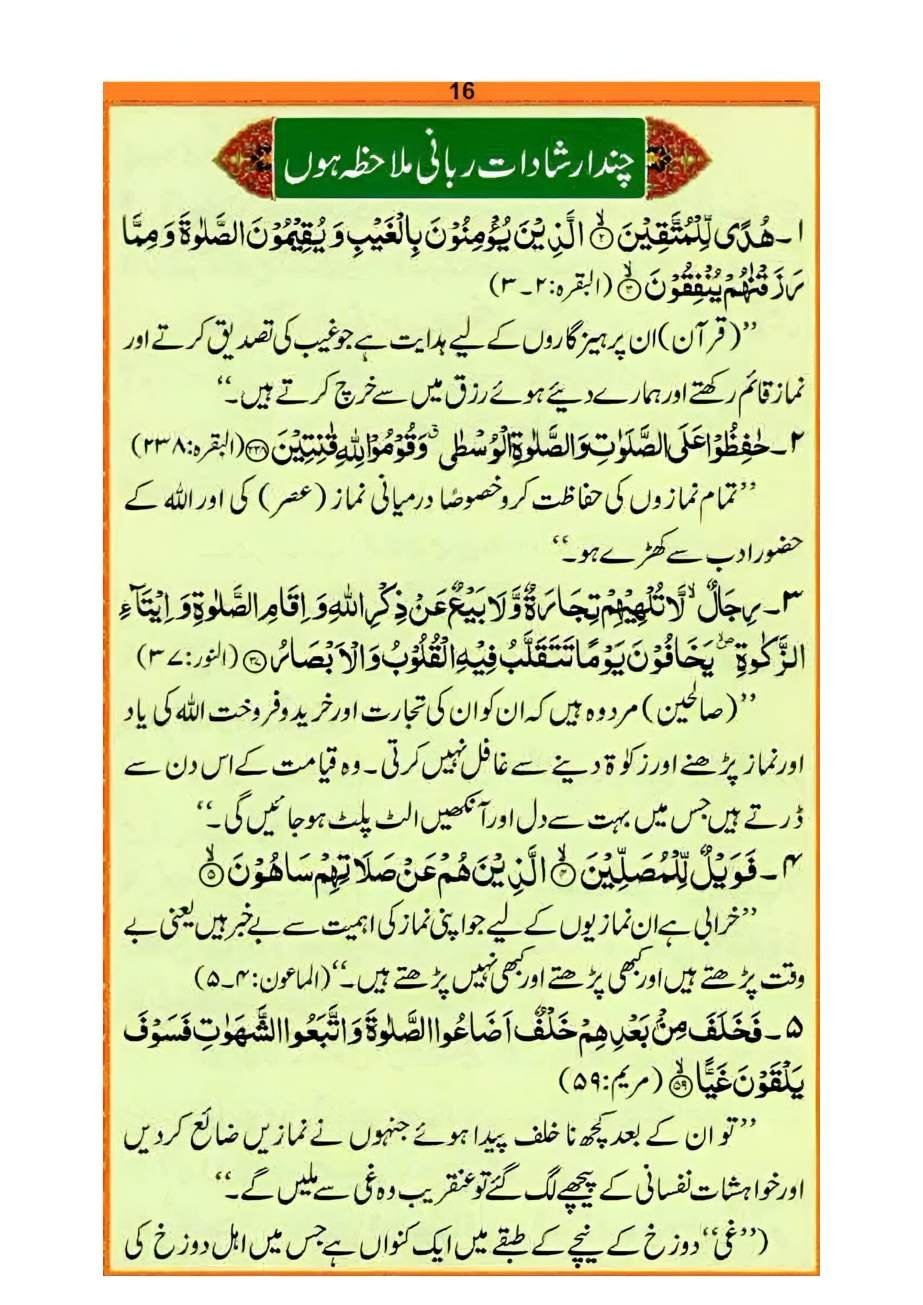 16
چند ارشادات ربانی ملاحظہ ہوں
۱۔ هُدًى لِّلْمُتَّقِيْنَ ۙ﴿۲﴾ الَّذِيْنَ يُؤْمِنُوْنَ بِالْغَيْبِ وَيُقِيْمُوْنَ الصَّلٰوةَ وَمِمَّا
رَزَقْنٰهُمْ يُنْفِقُوْنَ ۙ﴿۳﴾ (البقرہ:۲۔۳)
’’(قرآن)ان پرہیزگاروں کے لیے ہدایت ہے جو غیب کی تصدیق کرتے اور
نماز قائم رکھتے اور ہمارے دیئے ہوئے رزق میں سے خرچ کرتے ہیں۔‘‘
۲۔ حٰفِظُوْا عَلَى الصَّلَوٰتِ وَالصَّلٰوةِ الْوُسْطٰى ۗ وَقُوْمُوْا لِلّٰهِ قٰنِتِيْنَ ﴿۲۳۸﴾ (البقرہ:۲۳۸)
’’تمام نمازوں کی حفاظت کرو خصوصًا درمیانی نماز (عصر) کی اور اللہ کے
حضور ادب سے کھڑے ہو۔‘‘
۳۔ رِجَالٌ ۙ لَّا تُلْهِيْهِمْ تِجَارَةٌ وَّلَا بَيْعٌ عَنْ ذِكْرِ اللّٰهِ وَاِقَامِ الصَّلٰوةِ وَاِيْتَآءِ
الزَّكٰوةِ ۙ يَخَافُوْنَ يَوْمًا تَتَقَلَّبُ فِيْهِ الْقُلُوْبُ وَالْاَبْصَارُ ﴿۳۷﴾ (النور:۳۷)
’’(صالحین) مرد وہ ہیں کہ ان کو ان کی تجارت اور خرید و فروخت اللہ کی یاد
اور نماز پڑھنے اور زکوٰۃ دینے سے غافل نہیں کرتی۔ وہ قیامت کے اس دن سے
ڈرتے ہیں جس میں بہت سے دل اور آنکھیں الٹ پلٹ ہو جائیں گی۔‘‘
۴۔ فَوَيْلٌ لِّلْمُصَلِّيْنَ ۙ﴿۴﴾ الَّذِيْنَ هُمْ عَنْ صَلَاتِهِمْ سَاهُوْنَ ۙ﴿۵﴾
’’خرابی ہے ان نمازیوں کے لیے جو اپنی نماز کی اہمیت سے بے خبر ہیں یعنی بے
وقت پڑھتے ہیں اور کبھی پڑھتے اور کبھی نہیں پڑھتے ہیں۔‘‘ (الماعون:۴۔۵)
۵۔ فَخَلَفَ مِنْۢ بَعْدِهِمْ خَلْفٌ اَضَاعُوا الصَّلٰوةَ وَاتَّبَعُوا الشَّهَوٰتِ فَسَوْفَ
يَلْقَوْنَ غَيًّا ۙ﴿۵۹﴾ (مریم:۵۹)
’’تو ان کے بعد کچھ نا خلف پیدا ہوئے جنہوں نے نمازیں ضائع کر دیں
اور خواہشات نفسانی کے پیچھے لگ گئے تو عنقریب وہ غی سے ملیں گے۔‘‘
(’’غی‘‘ دوزخ کے نیچے کے طبقے میں ایک کنواں ہے جس میں اہل دوزخ کی